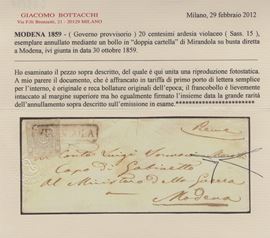 GIACOMO BOTTACCHI
Via F.lli Bronzetti, 21 - 20129 MILANO
Milano, 29 febbraio 2012
MODENA 1859 - ( Governo provvisorio ) 20 centesimi ardesia violaceo ( Sass. 15 ),
esemplare annullato mediante un bollo in "doppia cartella" di Mirandola su busta diretta
a Modena, ivi giunta in data 30 ottobre 1859.
Ho esaminato il pezzo sopra descritto, del quale è qui unita una riproduzione fotostatica.
A mio parere il documento, che è affrancato in tariffa di primo porto di lettera semplice
per l'interno, è originale e reca bollature originali dell'epoca; il francobollo è lievemente
intaccato al margine superiore ma ho egualmente firmato l'insieme data la grande rarità
dell'annullamento sopra descritto sull'emissione in esame.
Conte Luigi
Capo di Gabinetto
al Ministero della Guerra
Modena